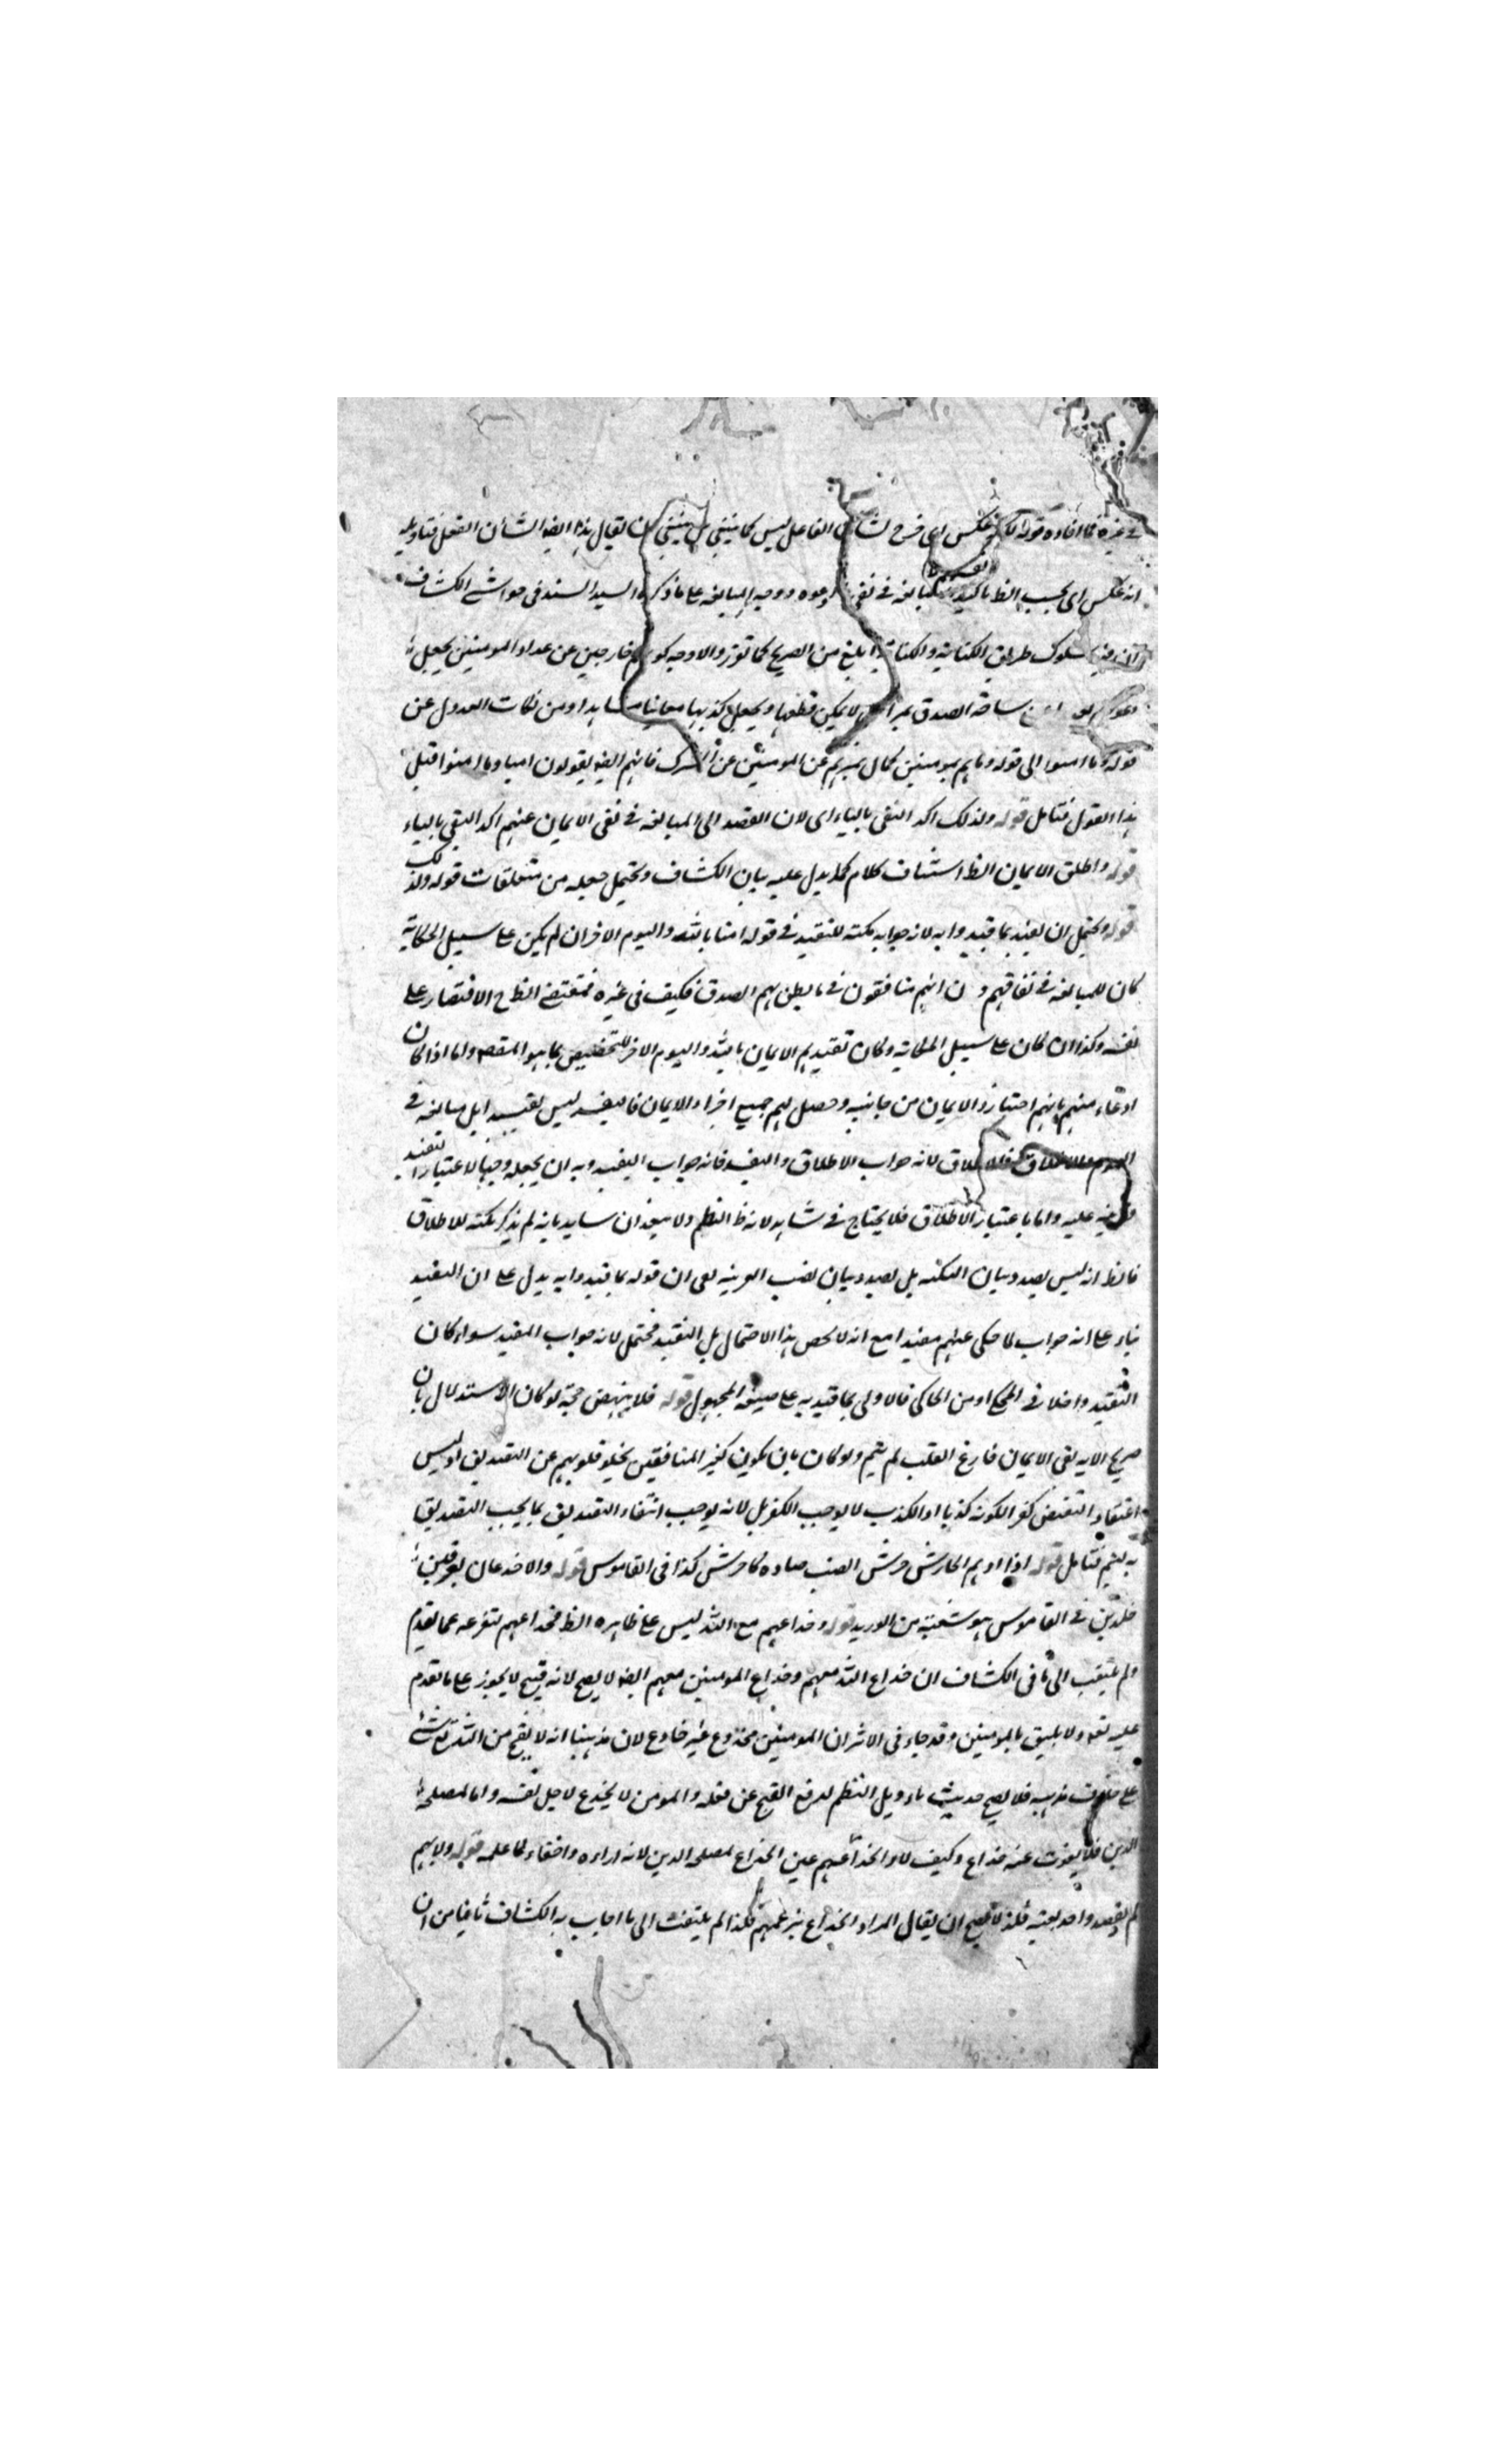 في غيره كما افاده قوله لكنه عكس اي فرح لشان الفاعل ليس كما ينبغي بل ينبغي ان يقال هذا ايضا لشأن الفعل فتاويله
انه عكس اي بحسب الظ تاكيدا ومبالغة في نفي دعوه ووجه المبالغة على ما ذكره السيد السند في حواشي الكشاف
ان فيه سلوك طريق الكناية والكناية ابلغ من الصريح كما تقرر والاوجه كونهم خارجين عن عداد المومنين يجعل
دعوهم ساحة الصدق بمراحل لا يمكن قطعها ويجعل كذبها معاينا مشاهدا ومن نكات العدول عن
قوله وما امنوا الى قوله وما هم بمومنين كمال تميزهم عن المومنين عن الشرك فانهم ايضا يقولون امنا وما امنوا قبل
هذا القول فتامل قوله ولذلك اكد النفي بالباء اي لان القصد الى المبالغة في نفي الايمان عنهم اكد النفي بالباء
قوله واطلق الايمان الظ استيناف كلام كما يدل عليه بيان الكشاف ويحتمل جعله من متعلقات قوله ولذلك
قوله ويحتمل ان يقيد بما قيدوا به لانه جوابه نكتة للتقييد في قوله امنا بالله واليوم الاخر ان لم يكن على سبيل الحكاية
كان للمبالغة في نفاقهم و ان انهم منافقون في ما يظن بهم الصدق فكيف في غيره فمقتضى الظ ح الاقتصار على
نفيه وكذا ان كان على سبيل الحكاية وكان تقييدهم الايمان بالله واليوم الاخر للتخصيص بما هو المقصد واما اذا كان
ادعاء منهم بانهم احتازوا الايمان من جانبيه وحصل لهم جميع اجزاء الايمان فالتقييد ليس تقييدا بل مبالغة في
لانه جواب الاطلاق والتقييد فانه جواب التقييد وبه ان يجعله وجها لاعتبار التقييد
قرينة عليه واما باعتبار الاطلاق فلا يحتاج في شاهد لانه ظ النظم ولا يبعد ان ساير بانه لم يذكر نكتة للاطلاق
فالظ انه ليس بصدد بيان النكتة بل بصدد بيان نصب القرينة يعني ان قوله بما قيدوا به يدل على ان التقييد
بناء على انه جواب لما حكى عنهم مقيدا مع انه لا يخص بهذا الاحتمال بل التقييد محتمل لانه جواب المقيد سواء كان
التقييد داخلا في المحكي او من الحاكي فالاولى بما قيد به على صيغة المجهول قوله فلا ينهض حجة لو كان الاستدلال بان
صريح الاية نفى الايمان فارغ القلب لم يتم ولو كان بان يكون كفر المنافقين بخلو قلوبهم عن التصديق اذ ليس
اعتقاد النقيض كفرا لكونه كذبا اذ الكذب لا يوجب الكفر بل لانه يوجب انتفاء التصديق بما يجب التصديق
به ليتم فتامل قوله اذا اوهم الحارش حرش الضب صاده كاحرش كذا في القاموس قوله والاخدعان لعرقين
خلديين في القاموس هو شعبة من الوريد قوله وخداعهم مع الله ليس على ظاهره الظ فخداعهم لتفرعه عما تقدم
ولم يلتفت الى ما في الكشاف ان خداع الله معهم وخداع المومنين معهم ايضا لا يصح لانه قبيح لا يجوز على ما تقدم
عليه تعالى ولا يليق بالمومنين وقد جاء في الاثر ان المومنين مخدوع غير خادع لان مذهبنا انه لا يقبح من الله تعالى شئ
على خلاف مذهبه فلا يصح حديث تاويل النظم لدفع القبح عن فعله والمومن لا يخدع لاجل نفسه واما لمصلحة
الدين فلا يفوت عنه خداع وكيف لا والخداع منهم عين الخداع لمصلحة الدين لانه اراده واخفاء لما علمه قوله ولانهم
لم يقصدوا خديعته فلذا لا يصح ان يقال المراد الخداع بزعمهم فلذا لم يلتفت الى ما اجاب به الكشاف ثانيا من ان